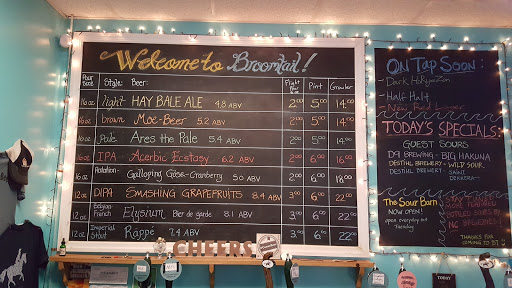 Welcome to Broomtail!
Pour Size Style: Beer: Flight Pour Pint Growler
16 oz light HAY BALE ALE 4.8 ABV 2.00 5.00 14.00
16 oz brown Moe-Beer 5.2 ABV 2.00 5.00 14.00
16 oz Pale Ares the Pale 5.4 ABV 2.00 5.00 14.00
16 oz IPA - Acerbic Ecstasy 6.2 ABV 2.00 6.00 16.00
16 oz Rotation - Galloping Gose-Cranberry 5.0 ABV 2.00 6.00 18.00
12 oz DIPA SMASHING GRAPEFRUITS 8.4 ABV 3.00 6.00 22.00
12 oz Belgian-French Elysium Bier de garde 8.1 ABV 3.00 6.00 22.00
12 oz Imperial Stout Rappé 7.4 ABV 3.00 6.00 22.00
CHEERS
ON TAP SOON:
-Dark HoRyezon
-Half Halt
-New Lager
TODAY'S SPECIALS:
GUEST SOURS
D9 BREWING - BIG HAKUNA
DESTIHL BREWERY - WILD SOUR
DESTIHL BREWERY -
The Sour Barn
NOW OPEN!
open everyday but
Tuesday
STAY
BOTTLED SOURS
NC BREWERIES!
THANKS FOR
COMING TO BT
TODAY